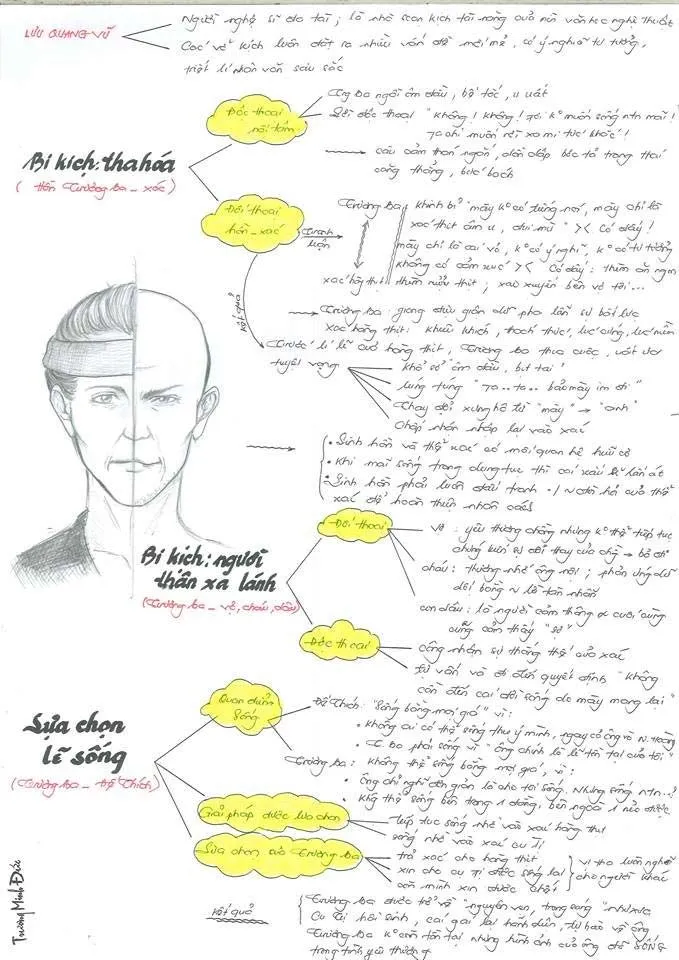 LƯU QUANG VŨ
Người nghệ sĩ đa tài; là nhà soạn kịch tài năng của nền văn học nghệ thuật
Các vở kịch luôn đặt ra nhiều vấn đề mới mẻ, có ý nghĩa tư tưởng,
triết lí nhân văn sâu sắc
Bi kịch: tha hóa
(Hồn Trương Ba - xác)
Độc thoại
nội tâm
Trg Ba ngồi ôm đầu, bế tắc, u uất
Lời độc thoại "Không! Không! Tôi k° muốn sống ntn mãi!
Ta chỉ muốn rời xa mi tức khắc!
câu cảm thán ngắn, dồn dập bộc lộ trạng thái
căng thẳng, bức bách
Đối thoại
hồn - xác
Tranh
luận
Trương Ba
khinh bỉ "mày k° có tiếng nói, mày chỉ là
xác thịt âm u, đui mù" >< Có đấy!
mày chỉ là cái vỏ, k° có ý nghĩ, k° có tư tưởng
không có cảm xúc >< Có đấy: thèm ăn ngon
xác hàng thịt
thèm rượu thịt; xao xuyến bên vợ tôi...
kết quả
Trương Ba: giọng điệu giận dữ pha lẫn sự bất lực
Xác hàng thịt: khiêu khích, thách thức, lúc cứng, lúc mềm
Trước lí lẽ của hàng thịt, Trương Ba thua cuộc, vất vả
tuyệt vọng
khổ sở ôm đầu, bịt tai!
lúng túng "Ta..ta.. bảo mày im đi"
Thay đổi xưng hô từ "mày" → "anh"
Chấp nhận nhập lại vào xác
• Linh hồn và thể xác có mối quan hệ hữu cơ
• Khi mãi sống trong dung tục thì cái xấu sẽ lấn át
• Linh hồn phải luôn đấu tranh đòi hỏi của thể
xác để hoàn thiện nhân cách
Bi kịch: người
thân xa lánh
(Trương Ba - vợ, cháu, dâu)
Đối thoại
Vợ: yêu thương chồng nhưng k° thể tiếp tục
chứng kiến sự đổi thay của chồng → bỏ đi
cháu: thương nhớ ông nội; phản ứng dữ
dội bằng lời tàn nhẫn
con dâu: là người cảm thông cuối cùng
cũng cảm thấy "sợ"
Độc thoại
công nhận sự thắng thế của xác
tự vấn và đi đến quyết định "không
cần đến cái đời sống do mày mang lại"
Lựa chọn
lẽ sống
(Trương Ba - Đế Thích)
Quan điểm
sống
Đế Thích: "sống bằng mọi giá" vì:
• Không ai có thể sống theo ý mình, ngay cả ông và N. Hoàng
• T. Ba phải sống vì "ông chính là lẽ tồn tại của tôi"
Trương Ba: không thể sống bằng mọi giá, vì:
• Ông chỉ nghĩ đơn giản là cho tôi sống. Nhưng sống ntn..?
• Khg thể sống bên trong 1 đằng, bên ngoài 1 nẻo được
Giải pháp được lựa chọn
tiếp tục sống nhờ vào xác hàng thịt
sống nhờ vào xác cu Tị
Lựa chọn của Trương Ba
trả xác cho hàng thịt
xin cho cu Tị được sống lại
còn mình xin được chết
vị tha luôn nghĩ
cho người khác
kết quả
Trương Ba được trở về "nguyên vẹn, trong sáng" như xưa
Cu Tị hồi sinh, cái gái lại hãnh diện, tự hào về ông
Trương Ba k° còn tồn tại nhưng hình ảnh của ông để SỐNG
trong tình yêu thương
Trương Minh Đức